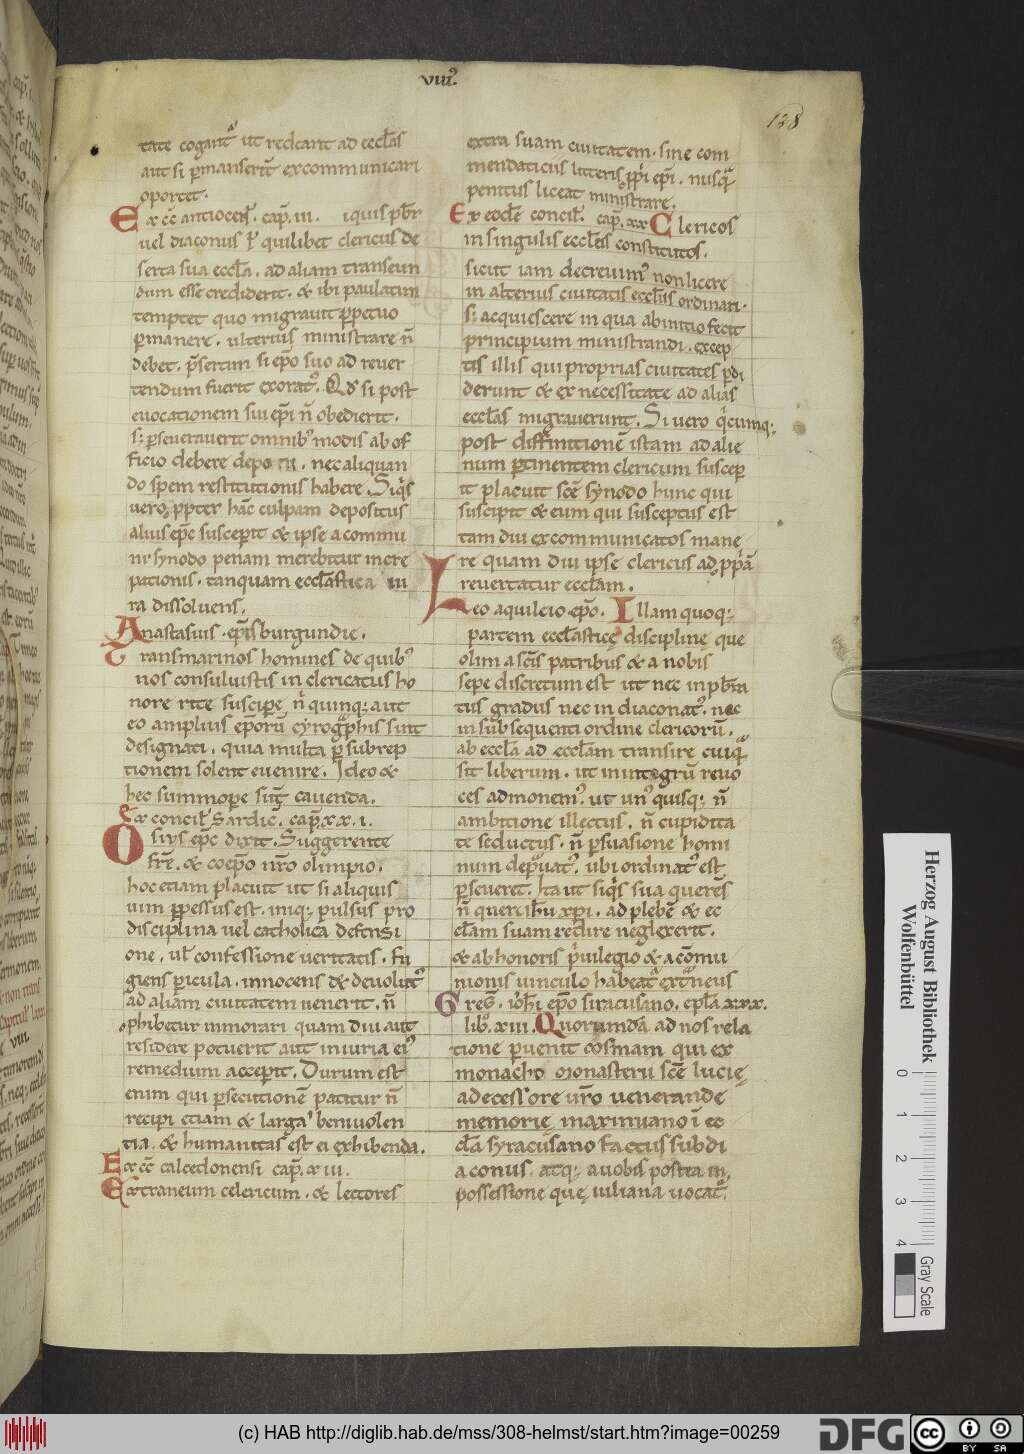 viiiꝰ.
128
tate cogant᷑ ut redeant ad eccl̄as
aut si ꝑmanserit̄ excommunicari
oportet.
Ex cc̄ antiocen̄. cap̄. iii. iquis pb̄r
uel diaconus ł quilibet clericus de
serta sua eccl̄a. ad aliam transeun
dum esse crediderit. & ibi paulatim
temptet quo migrauit ꝑpetuo
ꝑmanere. ulterius ministrare n̄
debet. p̄sertim si ep̄o suo ad reuer
tendum fuerit exoratꝰ. Qd̄ si post
euocationem sui ep̄i n̄ obedierit.
s; ꝑseuerauerit omnibꝰ modis ab of
ficio debere depo ni. nec aliquan
do spem restitutionis habere. Siq̇s
uero ꝓpter hāc culpam depositus
alius ep̄c susceperit & ipse a commu
ni synodo penam merebitur incre
pationis. tanquam eccl̄astica iu
ra dissoluens.
Anastasius. ep̄is burgundie.
Transmarinos homines de quibꝰ
nos consuluistis in clericatus ho
nore rite suscipe n̄ quinq; aut
eo amplius ep̄orū cyrog̃phis sint
designati. quia multa ꝑ subrep
tionem solent euenire. Ideo &
hec summope sunt̄ cauenda.
Ex concil̄ Sardic. cap̄. xx. i.
Osius ep̄c dixit. Suggerente
fr̄e. & coep̄o nr̄o olimpio.
hoc etiam placuit ut si aliquis
uim ꝑpessus est. iniq; pulsus pro
disciplina uel catholica defensi
one, ul̄ confessione ueritatis. fu
giens ꝑicula. innocens & deuotꝰ
ad aliam ciuitatem uenerit. n̄
ꝓhibetur immorari quam diu aut
residere potuerit aut iniuria eiꝰ
remedium acceperit. Durum est
enim qui ꝑsecutionē patitur n̄
recipi etiam & larga beniuolen
tia. & humanitas est ei exhibenda.
Ex cc̄ calcedonensi cap̄. x iii.
Extraneum celericum. & lectores
extra suam ciuitatem. sine com
mendaticiis litteris ꝓprii ep̄i. nusq̃
penitus liceat ministrare.
Ex eod̄e concil̄. cap̄. xx Clericos
in singulis eccl̄eis constitutos.
sicut iam decreuimꝰ non licere
in alterius ciuitatis eccl̄iis ordinari.
s; acquiescere in qua ab initio fecit
principium ministrandi. excep
tis illis qui proprias ciuitates ꝑdi
derunt & ex necessitate ad alias
eccl̄as migrauerunt. Si uero q̇cumq;
post diffinitionē istam ad alie
num ꝑtinentem clericum suscep
it placuit sc̄e synodo hunc qui
suscipit & eum qui susceptus est
tam diu excommunicatos mane
re quam diu ipse clericus ad ꝓpriā
reuertatur eccl̄am.
Leo aquileio. ep̄o. Illam quoq;
partem eccl̄astice discipline que
olim a sc̄is patribus & a nobis
sepe discretum est ut nec in pb̄ra
tus gradus nec in diaconatꝰ. nec
in subsequenti ordine clericorū.
ab eccl̄a ad eccl̄am transire cuiq̃
sit liberum. ut in integrū reuo
ces admonemꝰ. ut unꝰ quisq; n̄
ambitione illectus. n̄ cupidita
te seductus. n̄ ꝑsuasione homi
num deprauatꝰ. ubi ordinatꝰ est
ꝑseueret. Ita ut siq̇s sua querēs
n̄ que ih̄u xp̄i. ad plebē & ec
cl̄am suam redire neglexerit.
& ab honoris p̃uilegio & a cōmu
nionis uinculo habeat᷑ extraneus
Greg. ioh̄i ep̄o siracusano. epl̄a xxx.
libꝰ. xiii. Quorumdā ad nos rela
tione ꝑuenit cosmam qui ex
monacho monasterii sc̄e lucie
a decessore ur̄o uenerande
memorie maximiano ī ec
cl̄a syracusano factus subdi
aconus. atq; a uobis postea in
possessione que iuliana uocat᷑
Herzog August Bibliothek
Wolfenbüttel
0 1 2 3 4
Gray Scale
(c) HAB http://diglib.hab.de/mss/308-helmst/start.htm?image=00259
DFG
cc BY SA